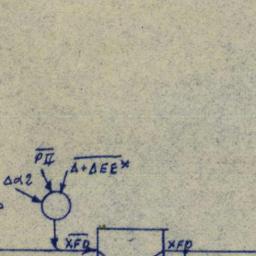 PII
Δ+ΔEE*
Δα2
XFD XFD